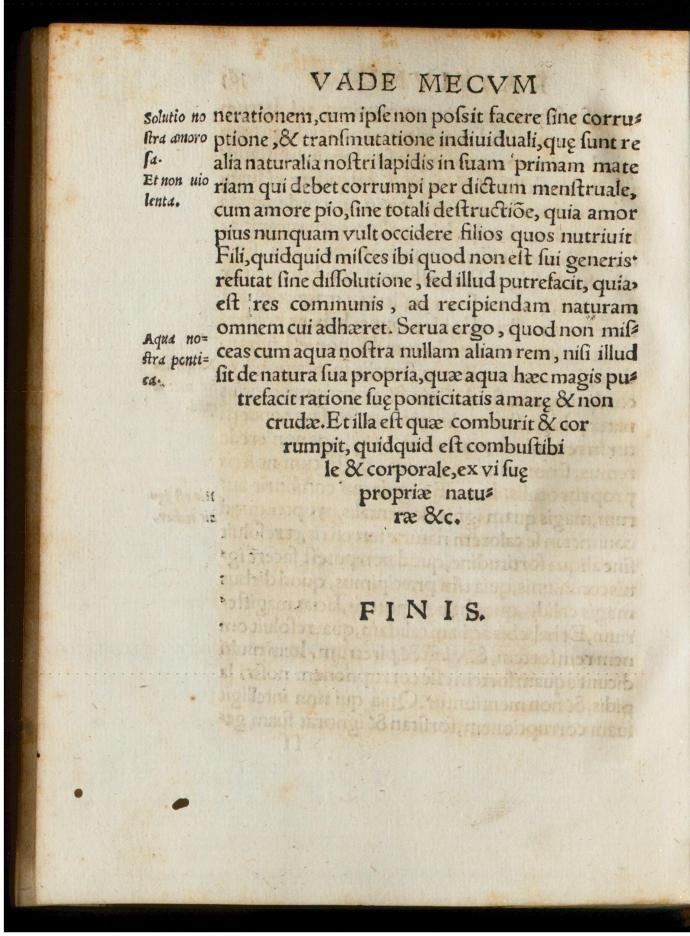 VADE MECVM
Solutio no
ſtra amoro
ſa.
Et non uio
lenta.
nerationem,cum ipſe non poſsit facere ſine corru⸗
ptione ,& tranſmutatione indiuiduali,quę ſunt re
alia naturalia noſtri lapidis in ſuam primam mate
riam qui debet corrumpi per dictum menſtruale,
cum amore pio,ſine totali deſtructiõe, quia amor
pius nunquam vult occidere filios quos nutriuit
Fili,quidquid miſces ibi quod non eſt ſui generis
refutat ſine diſſolutione , ſed illud putrefacit, quia
eſt res communis , ad recipiendam naturam
omnem cui adhæret. Serua ergo , quod non miſ⸗
Aqua no⸗
ſtra ponti⸗
ca.
ceas cum aqua noſtra nullam aliam rem , niſi illud
ſit de natura ſua propria,quæ aqua hæc magis pu⸗
trefacit ratione ſuę ponticitatis amarę & non
crudæ.Et illa eſt quæ comburit & cor
rumpit, quidquid eſt combuſtibi
le & corporale,ex vi ſuę
propriæ natu⸗
ræ &c.
FINIS.